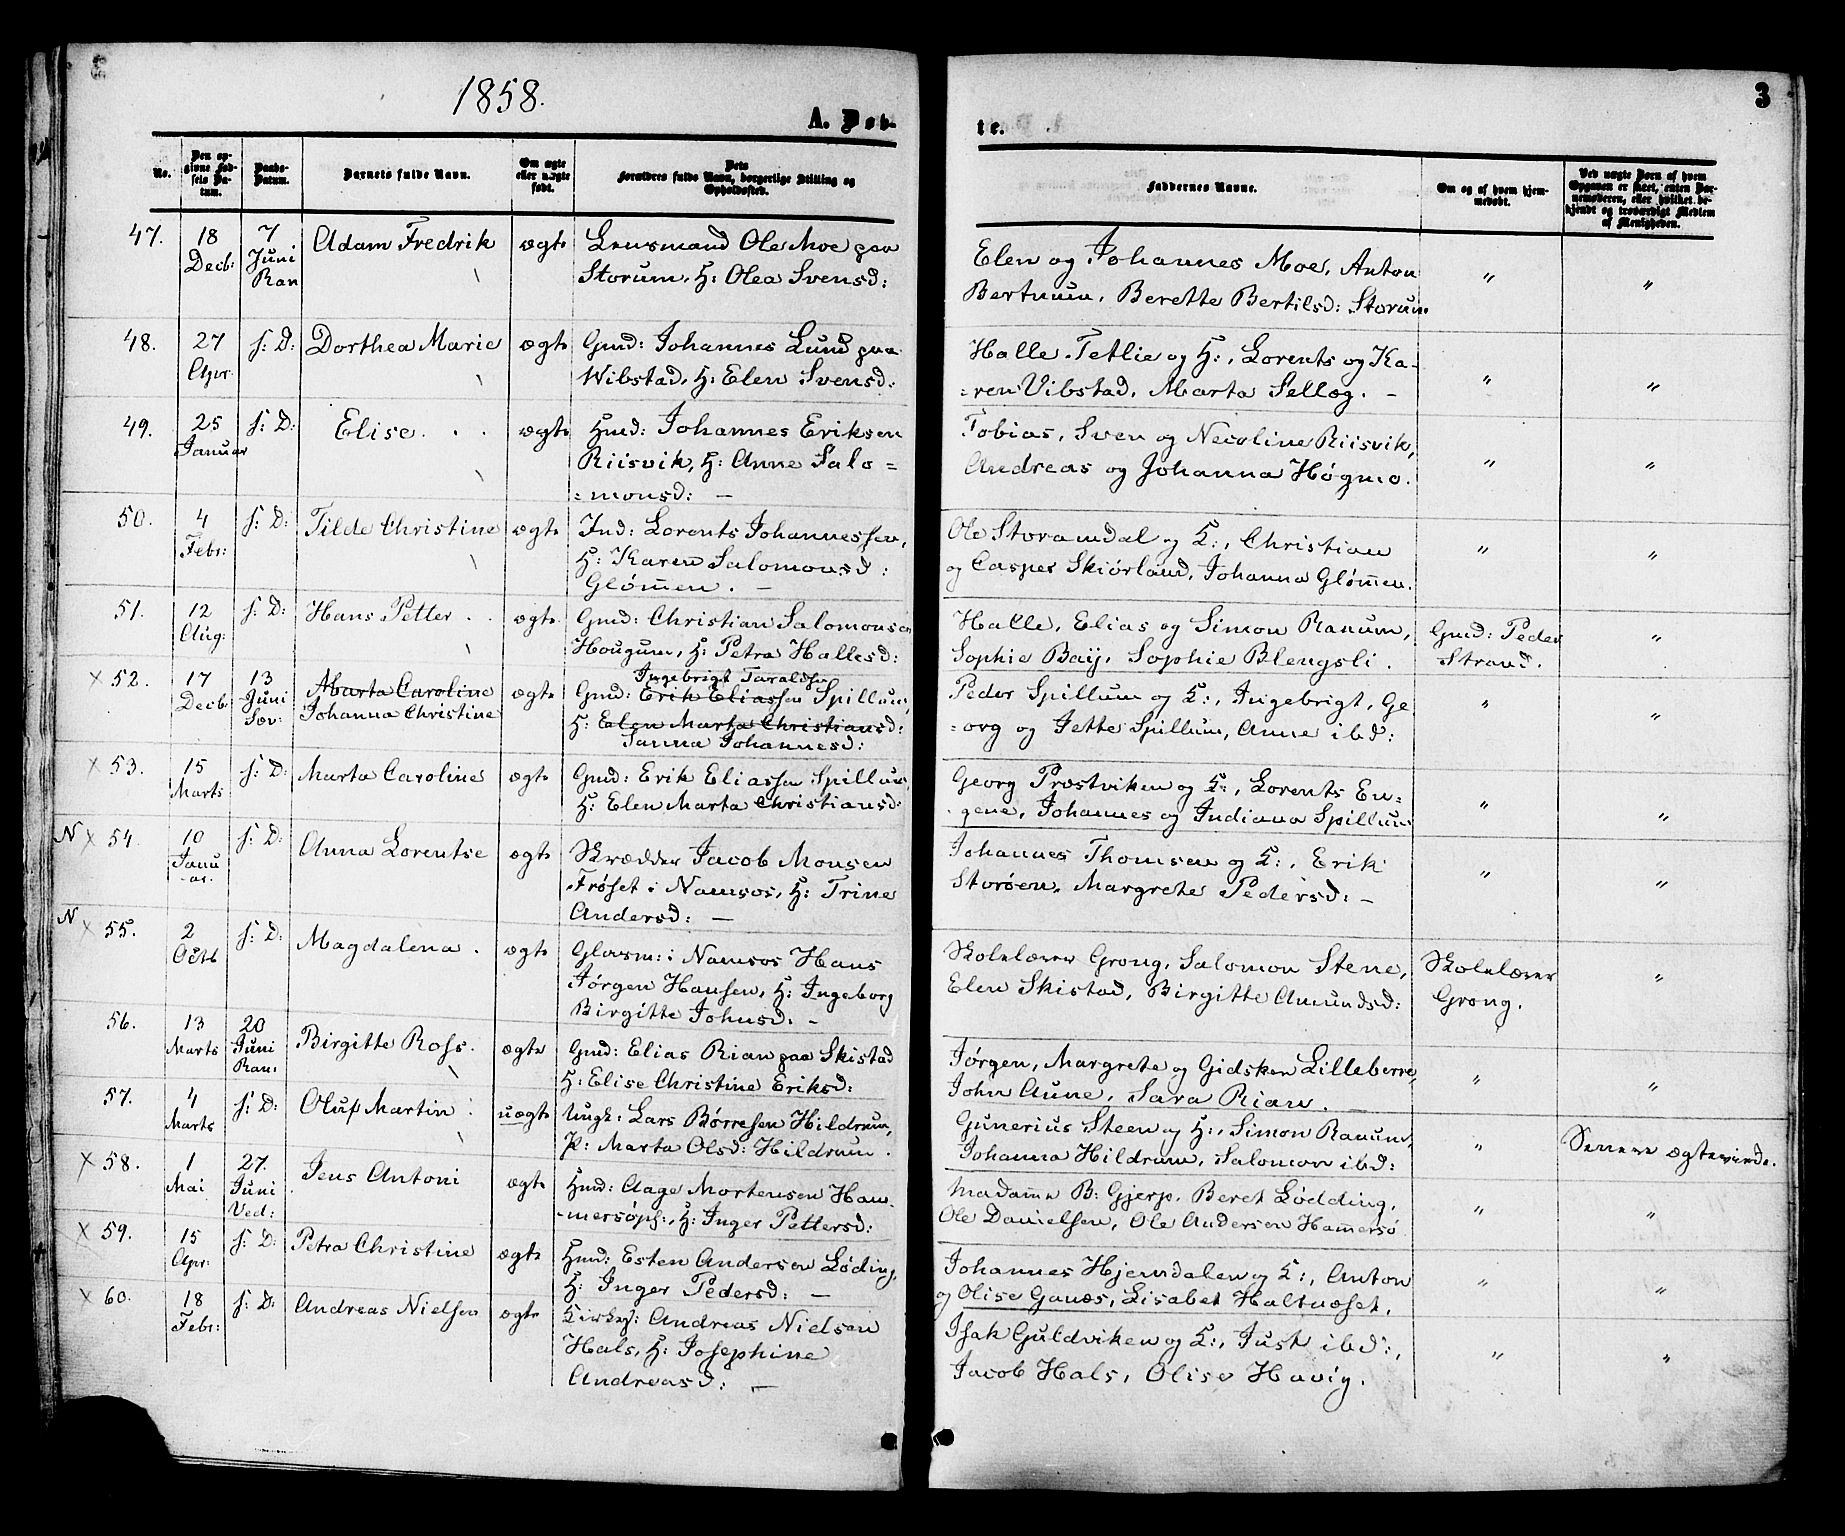 1858.
A. Døb-
No.
Den op-
givne Fød-
sels Da-
tum.
Daabs-
Datum.
Barnets fulde Navn.
Om ægte
eller uægte
født.
Dets
Forældres fulde Navn, borgerlige Stilling og
Opholdssted.
47.
18
Decb:
7
Juni
Ran
Adam Fredrik
ægte
Lensmand Ole Moe paa
Storum, H: Olea Svensd:
48.
27
Apr.
s: D:
Dorthea Marie
ægte
Gmd: Johannes Lund paa
Wibstad, H: Elen Svensd:
49.
25
Januar
s: D:
Elise. . .
ægte
Hmd: Johannes Eriksen
Riisvik, H: Anne Salo=
=monsd: —
50.
4
Febr:
s: D:
Tilde Christine
ægte
Ind: Lorents Johannessen,
H: Karen Salomonsd:
Glømmen. —
51.
12
Aug:
s: D:
Hans Petter . .
ægte
Gmd: Christian Salomonsen
Hougum, H: Petra Hallesd:
× 52.
17
Decb
13
Juni
Sæv:
Marta Caroline
Johanna Christine
ægte
Ingebrigt Taraldsen
Gmd: Erik Eliassen Spillum,
H: Elen Marta Christiansd:
Sanna Johannesd:
× 53.
15
Marts
s: D:
Marta Caroline
ægte
Gmd: Erik Eliassen Spillum,
H: Elen Marta Christiansd:
N × 54.
10
Janu
-ar.
s: D:
Anna Lorentse
ægte
Skrædder Jacob Monsen
Frøset i Namsos, H: Trine
Andersd: —
N × 55.
2
Octb
s: D:
Magdalena .
ægte
Glasm: i Namsos Hans
Jørgen Hansen, H: Ingeborg
Birgitte Johnsd. —
56.
13
Marts
20
Juni
Ran:
Birgitte Ross.
ægte
Gmd: Elias Rian paa Skistad
H: Elise Christine Eriksd:
57.
4
Marts
s: D:
Oluf Martin .
uægte
Ungk: Lars Børresen Hildrum,
P: Marta Olsd: Hildrum.
× 58.
1
Mai
27.
Juni
Ved:
Jens Antoni
ægte
Hmd: Aage Mortensen Ham-
-mersøpl:, H: Inger Pettersd:
× 59.
15
Apr:
s: D:
Petra Christine
ægte
Hmd: Esten Andersen Løding,
H: Inger Pedersd: —
× 60.
18
Febr:
s: D:
Andreas Nielsen
ægte
Andreas Nielsen
Hals, H: Josephine
Andreasd: —
3
te.
Faddernes Navne.
Om og af hvem hjem-
medøbt.
Ved uægte Børn af hvem
Opgaven er skeet, enten Bar-
nemoderen, eller hvilket be-
kjendt og troværdigt Medlem
af Menigheden.
Elen og Johannes Moe, Anton
Bertnum, Berette Bertilsd: Storum.
"
"
Halle Tetlie og H:, Lorents og Ka-
=ren Vibstad, Marta Sellæg. —
"
"
Tobias, Sven og Nicoline Riisvik,
Andreas og Johanna Høgmo.
"
"
Ole Storamdal og K:, Christian
og Casper Skiørland, Johanna Glømmen.
"
"
Halle, Elias og Simon Ranum,
Sophie Baij, Sophie Blengsli.
Gmd: Peder
Strand.
"
Peder Spillum og K:, Ingebrigt, Ge
=org og Jette Spillum, Anne ibd:
"
"
Georg Præstviken og K:, Lorents En-
-gene, Johannes og Indiana Spillum
"
"
Johannes Thomsen og K:, Erik
Storøen, Margrete Pedersd: —
"
"
Skolelærer Grong, Salomon Stene,
Elen Skistad, Birgitte Amundsd:
Skolelærer
Grong.
"
Jørgen, Margrete og Gidsken Lilleberre,
John Aune, Sara Rian. —
"
"
Gunerius Steen og H:, Simon Ranum,
Johanna Hildrum, Salomon ibd:
"
Senere ægteviede.
Madamme B: Gjerp, Beret Lødding,
Ole Danielsen, Ole Andersen Hammersø
"
"
Johannes Hjemdalen og K:, Anton
og Olise Ganæs, Lisabet Haltnæset.
"
"
Isak Guldviken og K:, Just ibd:,
Jacob Hals, Olise Havig.
"
"